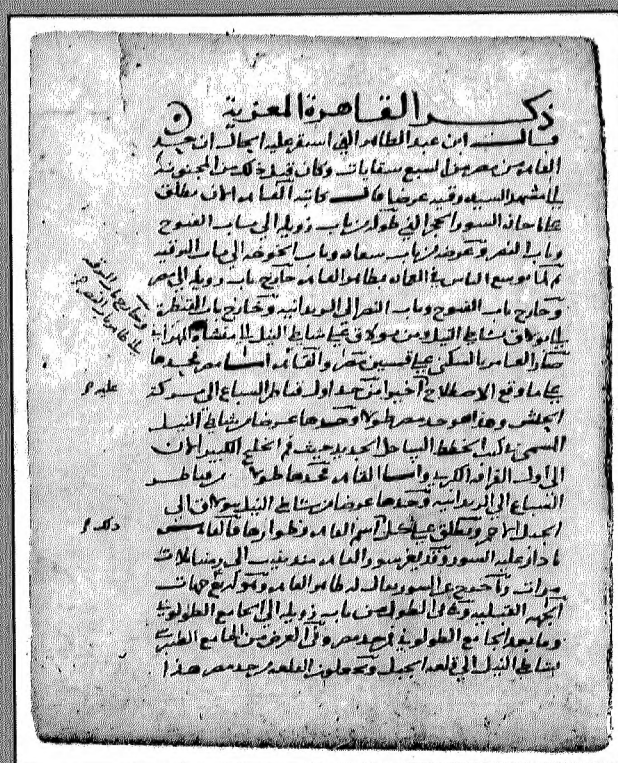 ذكر القاهرة المعزية
قال ابن عبد الظاهر الذي استقر عليه الحال ان حد
القاهره من مصر من السبع سقايات وكان قبل ذلك من المجنونة
الى مشهد السيده رقيه عرضا قالت كاتبه القاهره الان تطلق
على ما حازه السور الحجر الذي طوله من باب زويله الى باب الفتوح
وباب النصر وعرضه من باب سعاده وباب الخوخه الى باب البرقيه
ثم لما توسع الناس في العماره بظاهر القاهره خارج باب زويله الى مصر
وخارج باب الفتوح وباب النصر الى الريدانيه وخارج باب القنطرة
الى بولاق بشاطئ النيل ومن بولاق على شاطئ النيل الى منشاة المهراني
صار العامر بالسكنى على قسمين مصر والقاهره اما مصر فحدها
على ما وقع الاصطلاح اخيرا من حد اول قناطر السباع الى بركة
الحبش وهذا هو حد مصر طولا وحدها عرضا من شاطئ النيل
الى اول القرافه الكبرى واما القاهره فحدها طولا من قناطر
السباع الى الريدانيه وحدها عرضا من شاطئ النيل ببولاق الى
الجبل الاحمر ويطلق على كل اسم القاهره وظواهرها فالقاهره
ما دار عليه السور وقد
مرات وما خرج عن السور يقال له ظاهر القاهره وهو اربع جهات
الجهه القبليه وهي في الطول من باب زويله الى الجامع الطولوني
وما بعد الجامع الطولوني من حد مصر وفي العرض من الجامع الطيبرسي
بشاطئ النيل الى قلعه الجبل القلعه من حد مصر هذا
وخارج باب البرقيه
عليه